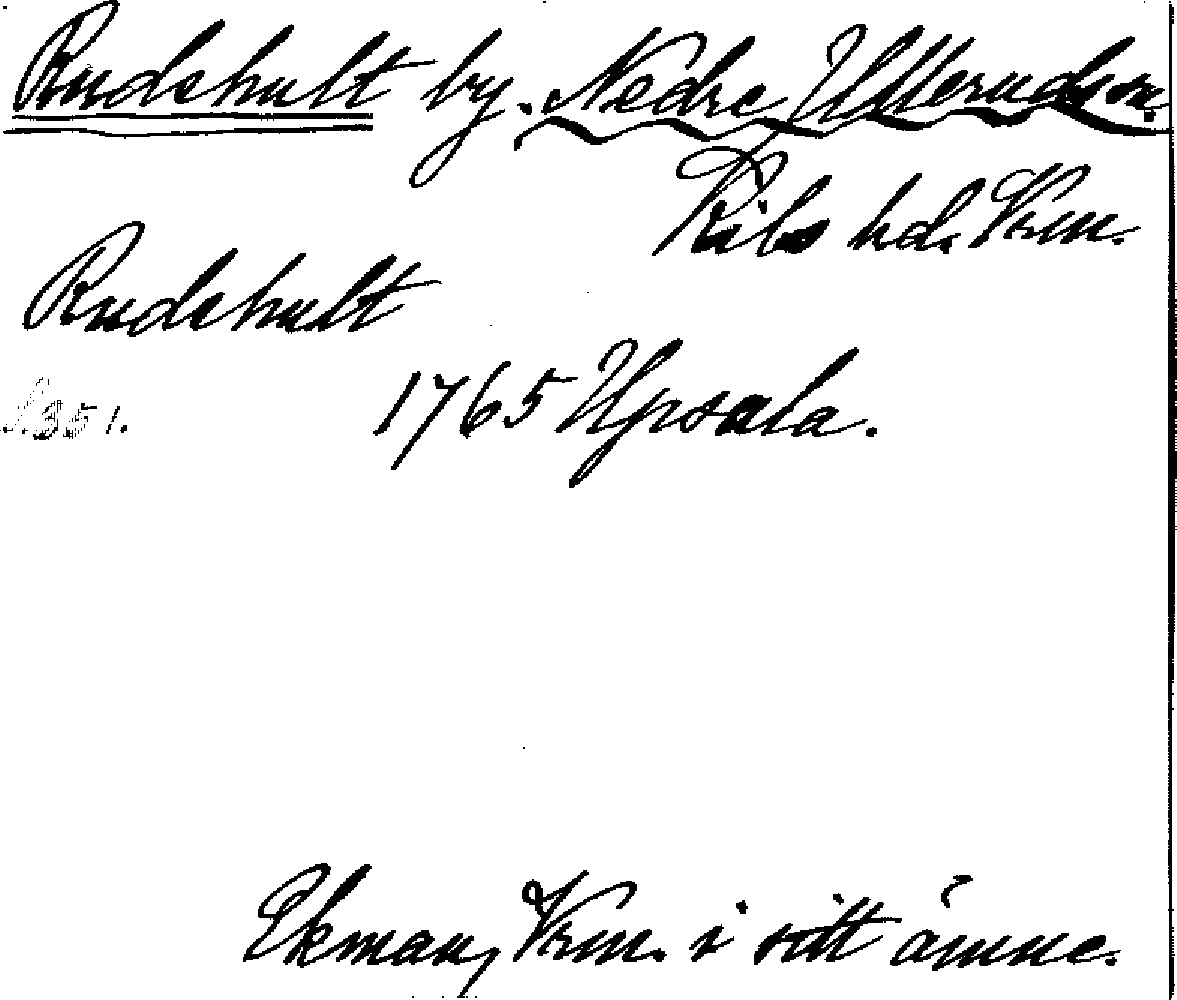 Rudshult by. Nedre Ullerud sn.
Kils hd. Vrm.
Rudshult
1765 Upsala.
S. 351.
Ekman, Vrm. i sitt ämne.